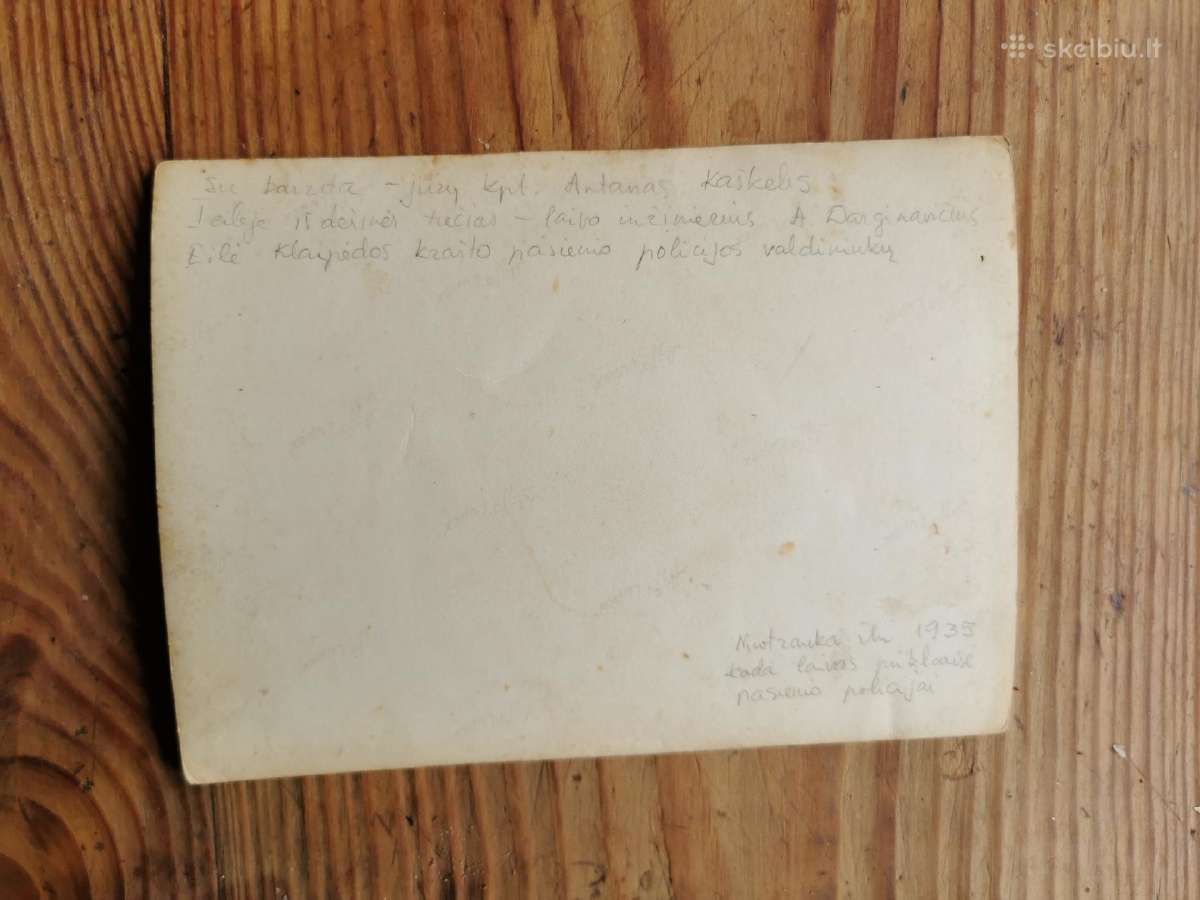 skelbiu.lt
Su barzda – jūrų kpt. Antanas Kaškelis
I eilėje iš dešinės trečias – laivo inžinierius A. Darginavičius
Eilė Klaipėdos krašto pasienio policijos valdininkų
Nuotrauka 1935
kada laivas priklausė
pasienio policijai